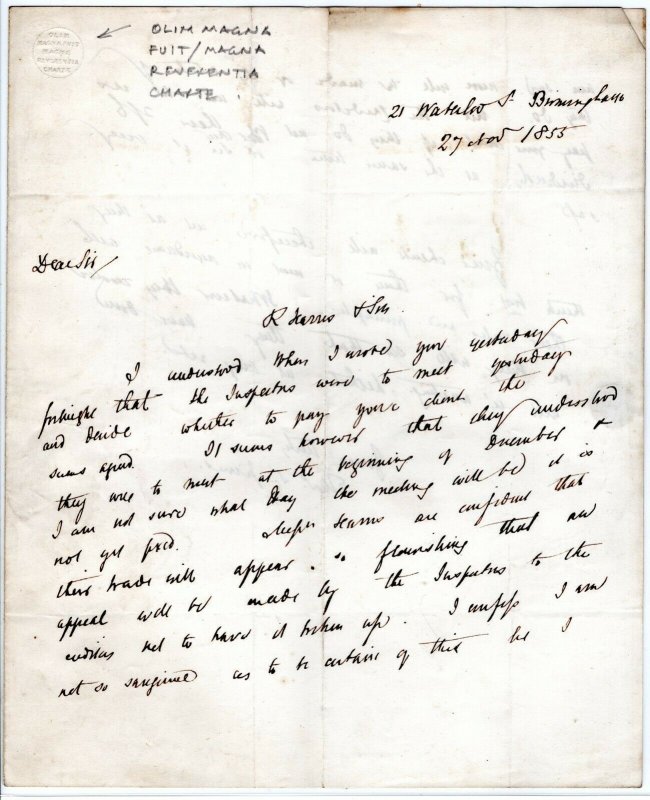 OLIM
MAGNA FUIT
MAGNA
REVERENTIA
CHARTE
OLIM MAGNA
FUIT / MAGNA
REVERENTIA
CHARTE.
21 Waterloo St Birmingham
27 Nov 1855
Dear Sir/
R Harris & Son
I understood when I wrote you yesterday
fortnight that the Inspectors were to meet yesterday
and decide whether to pay your client the
sums agreed. It seems however that they understood
they were to meet at the beginning of December &
I am not sure what day the meeting will be it is
not yet fixed. Messrs Harris are confident that
their trade will appear so flourishing that an
appeal will be made by the Inspectors to the
creditors not to have it broken up. I confess I am
not so sanguine as to be certain of this but I